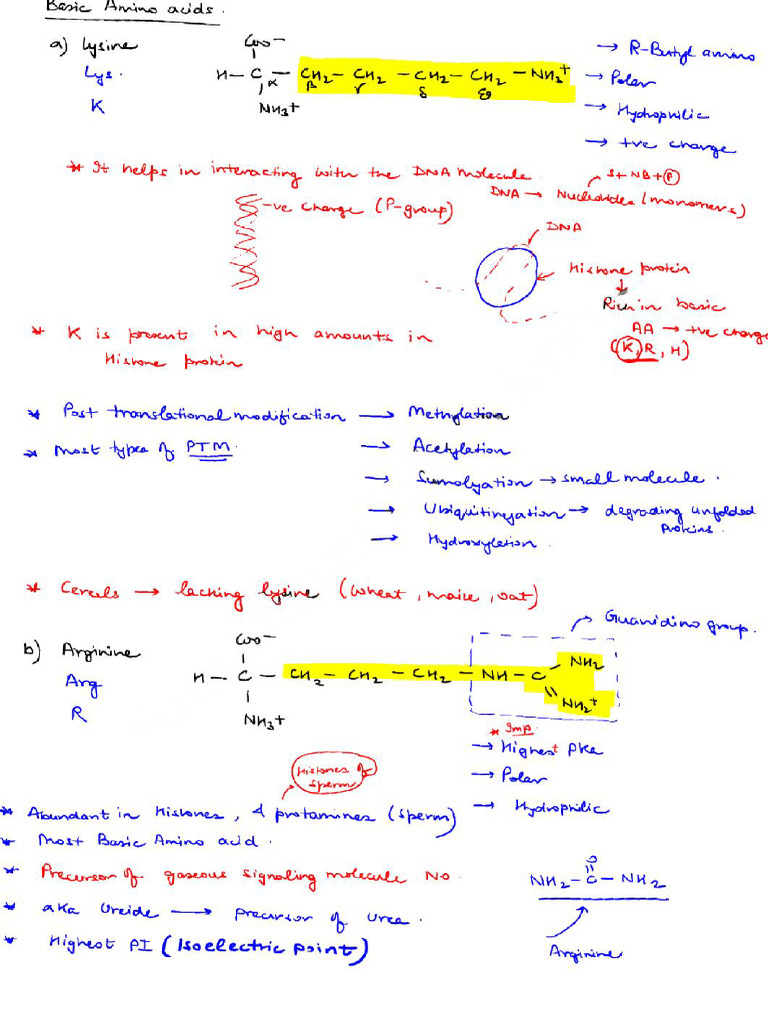 Basic Amino acids.
a) Lysine
Lys.
K
COO-
H - C - CH2 - CH2 - CH2 - CH2 - NH3+
α β γ δ ε
NH3+
→ R-Butyl amino
→ Polar
→ Hydrophilic
→ +ve charge
* It helps in interacting with the DNA molecule
S + NB + P
DNA → Nucleotides (monomers)
-ve charge (P-group)
DNA
Histone protein
Rich in basic
AA → +ve charge
(K, R, H)
* K is present in high amounts in
Histone protein
* Post translational modification → Methylation
* Most types of PTM. → Acetylation
→ Sumolyation → small molecule.
→ Ubiquitinyation → degrading unfolded
proteins.
→ Hydroxylation.
* Cereals → lacking lysine (wheat, maize, oat)
Guanidino group.
b) Arginine
Arg
R
COO-
H - C - CH2 - CH2 - CH2 - NH - C
NH2
NH2+
NH3+
* Imp
→ Highest PKa
→ Polar
→ Hydrophilic
Histones of
sperm
* Abundant in Histones, & protamines (sperm)
* Most Basic Amino acid.
* Precursor of gaseous signaling molecule NO.
* aka Ureide → precursor of urea.
* Highest PI (Isoelectric point)
O
NH2 - C - NH2
Arginine